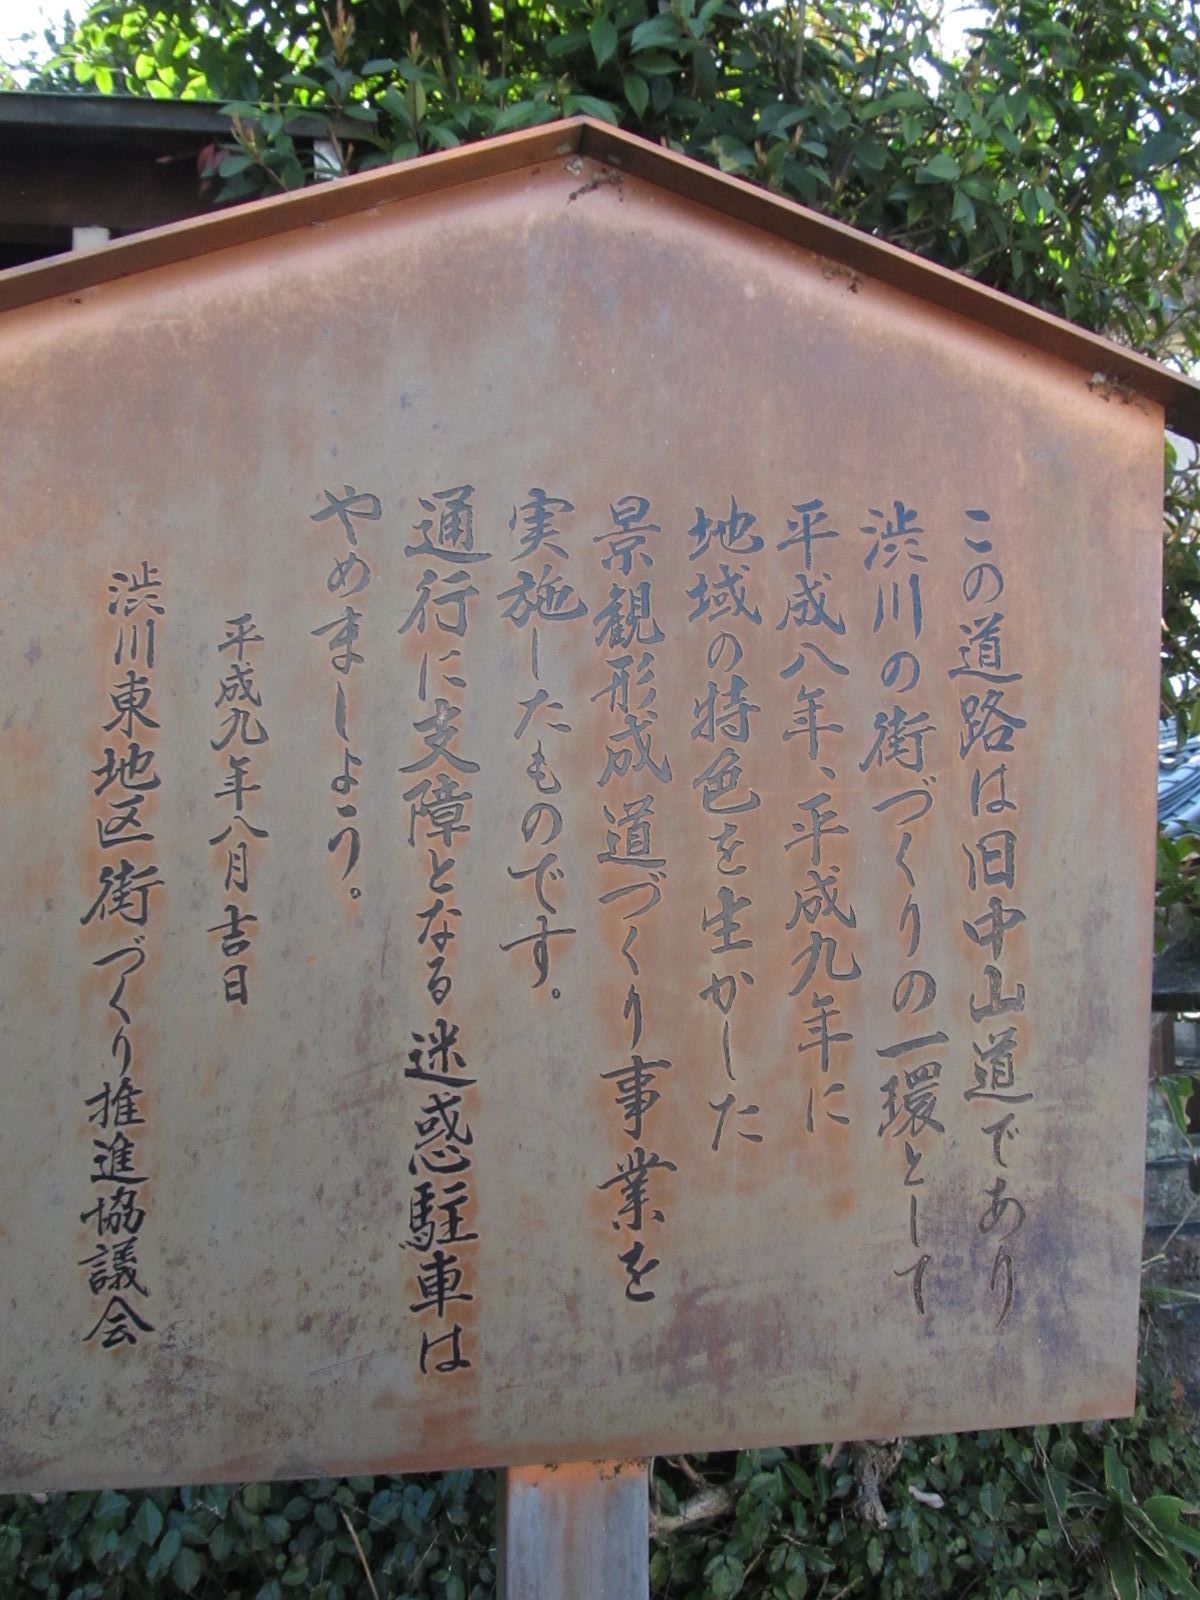 この道路は旧中山道であり
渋川の街づくりの一環として
平成八年、平成九年に
地域の特色を生かした
景観形成道づくり事業を
実施したものです。
通行に支障となる迷惑駐車は
やめましょう。
平成九年八月吉日
渋川東地区街づくり推進協議会